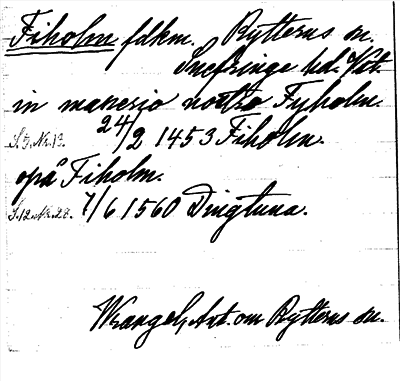 Fiholm fdkm. Rytterns sn.
Snefringe hd. Vstm.
in manerio nostro Fyholm.
S. 7, Nr. 13. 24/2 1453 Fiholm.
opå Fiholm.
S. 12. Nr. 28. 7/6 1560 Dingtuna.
Wrangel, Ant. om Rytterns sn.